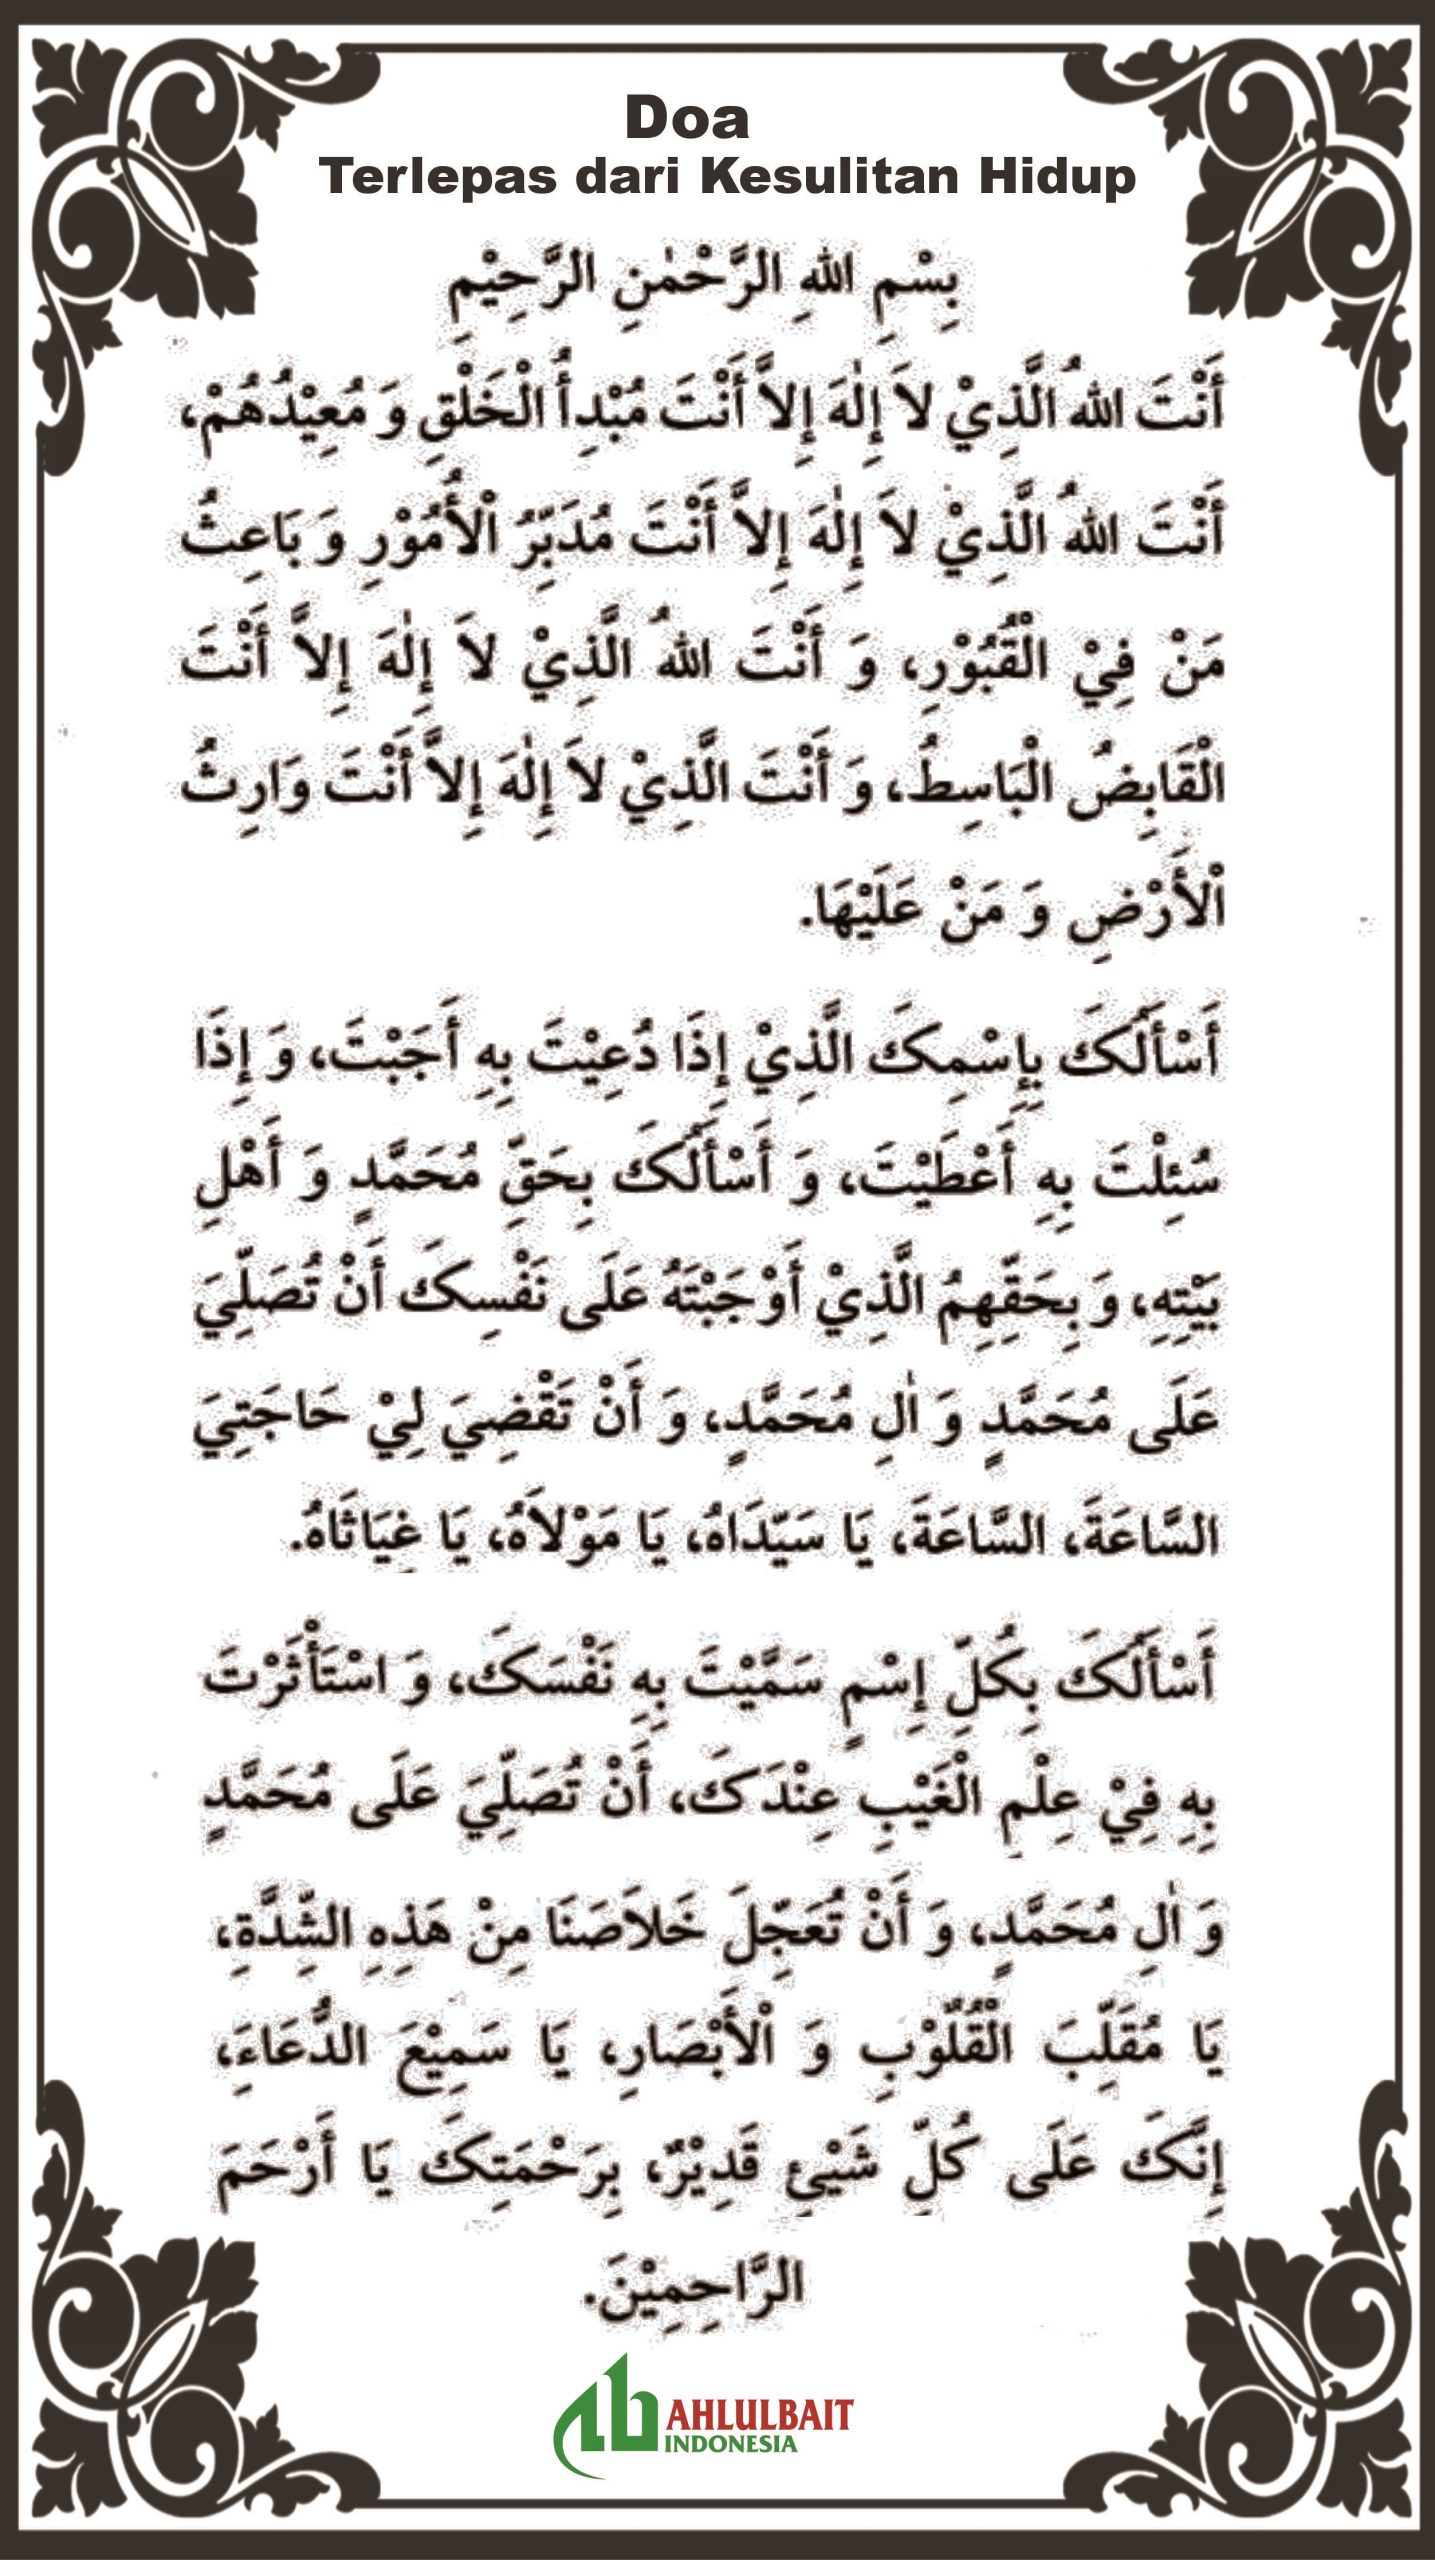 Doa
Terlepas dari Kesulitan Hidup
بِسْمِ اللهِ الرَّحْمٰنِ الرَّحِيْمِ
أَنْتَ اللهُ الَّذِيْ لاَ إِلٰهَ إِلاَّ أَنْتَ مُبْدِأُ الْخَلْقِ وَ مُعِيْدُهُمْ،
أَنْتَ اللهُ الَّذِيْ لاَ إِلٰهَ إِلاَّ أَنْتَ مُدَبِّرُ الْأُمُوْرِ وَ بَاعِثُ
مَنْ فِيْ الْقُبُوْرِ، وَ أَنْتَ اللهُ الَّذِيْ لاَ إِلٰهَ إِلاَّ أَنْتَ
الْقَابِضُ الْبَاسِطُ، وَ أَنْتَ الَّذِيْ لاَ إِلٰهَ إِلاَّ أَنْتَ وَارِثُ
الْأَرْضِ وَ مَنْ عَلَيْهَا.
أَسْأَلُكَ بِإِسْمِكَ الَّذِيْ إِذَا دُعِيْتَ بِهِ أَجَبْتَ، وَ إِذَا
سُئِلْتَ بِهِ أَعْطَيْتَ، وَ أَسْأَلُكَ بِحَقِّ مُحَمَّدٍ وَ أَهْلِ
بَيْتِهِ، وَ بِحَقِّهِمُ الَّذِيْ أَوْجَبْتَهُ عَلَى نَفْسِكَ أَنْ تُصَلِّيَ
عَلَى مُحَمَّدٍ وَ اٰلِ مُحَمَّدٍ، وَ أَنْ تَقْضِيَ لِيْ حَاجَتِيَ
السَّاعَةَ، السَّاعَةَ، يَا سَيِّدَاهُ، يَا مَوْلاَهُ، يَا غِيَاثَاهُ.
أَسْأَلُكَ بِكُلِّ إِسْمٍ سَمَّيْتَ بِهِ نَفْسَكَ، وَ اسْتَأْثَرْتَ
بِهِ فِيْ عِلْمِ الْغَيْبِ عِنْدَكَ، أَنْ تُصَلِّيَ عَلَى مُحَمَّدٍ
وَ اٰلِ مُحَمَّدٍ، وَ أَنْ تُعَجِّلَ خَلاَصَنَا مِنْ هَذِهِ الشِّدَّةِ،
يَا مُقَلِّبَ الْقُلُوْبِ وَ الْأَبْصَارِ، يَا سَمِيْعَ الدُّعَاءَ،
إِنَّكَ عَلَى كُلِّ شَيْئٍ قَدِيْرٌ، بِرَحْمَتِكَ يَا أَرْحَمَ
الرَّاحِمِيْنَ.
AHLULBAIT
INDONESIA